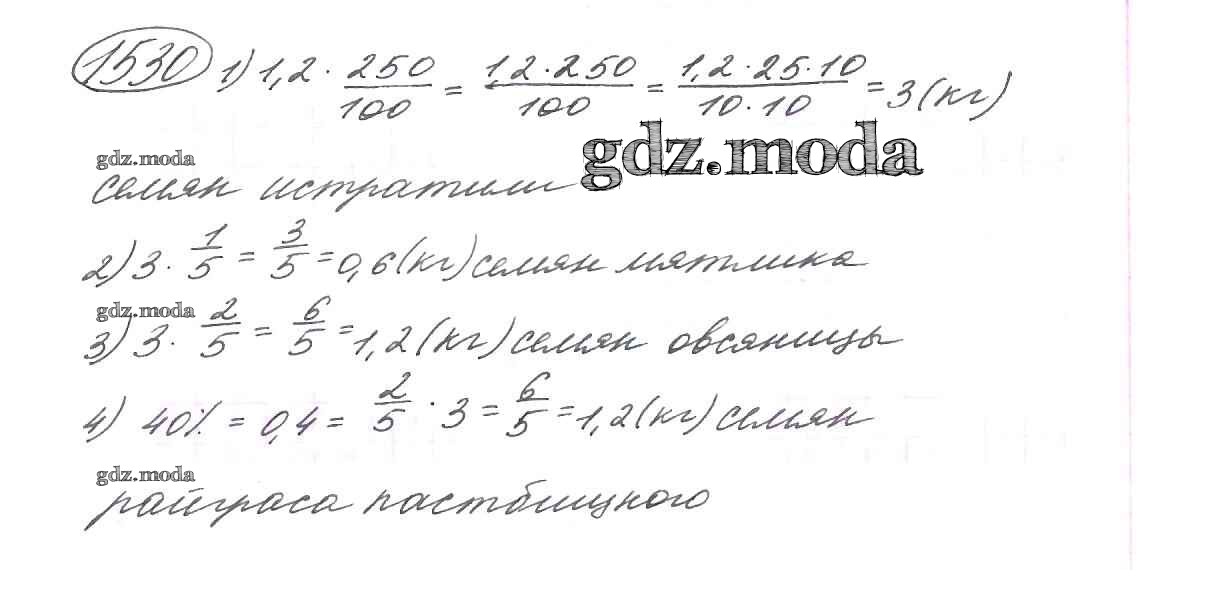 1530 1) 1,2 · 250/100 = 1,2 · 250/100 = 1,2 · 25 · 10/10 · 10 = 3 (кг)
gdz.moda
gdz.moda
семян истратили
2) 3 · 1/5 = 3/5 = 0,6 (кг) семян мятлика
gdz.moda
3) 3 · 2/5 = 6/5 = 1,2 (кг) семян овсяницы
4) 40% = 0,4 = 2/5 · 3 = 6/5 = 1,2 (кг) семян
gdz.moda
райграса пастбищного